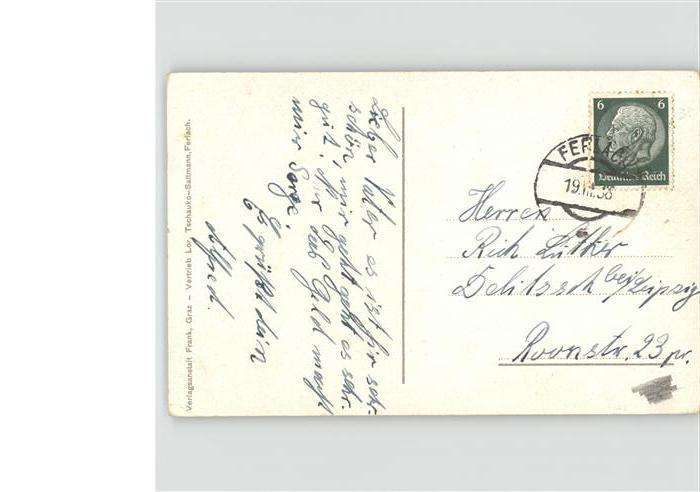 Lieber Vater es ist hir sehr
schön, mir geht geht es sehr
gut. Nur das Geld macht
mir Sorge.
Es grüßt dein
Alfred.
Verlagsanstalt Frank, Graz – Vertrieb Lor. Tschauko-Sattmann, Ferlach.
6 6
Deutsches Reich
FERLACH
19.III.38
Herren
Rich Lütker
Delitzsch bei Leipzig
Roonstr. 23 pr.